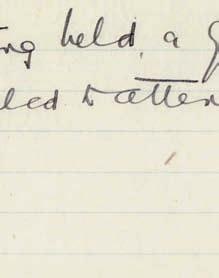 ing held, a
led to atten